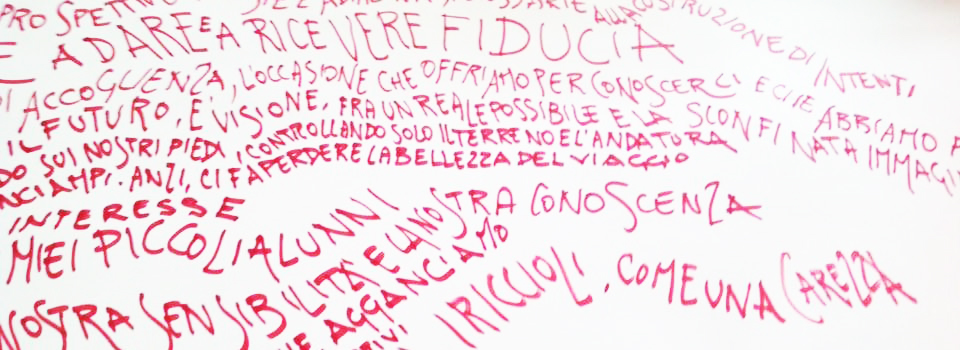 PROSPETTIVE
ALLA COSTRUZIONE DI INTENTI,
E A DARE E A RICEVERE FIDUCIA
DI ACCOGLIENZA, L'OCCASIONE CHE OFFRIAMO PER CONOSCERCI E CHE ABBIAMO
IL FUTURO, È VISIONE, FRA UN REALE POSSIBILE E LA SCONFINATA
SUI NOSTRI PIEDI, CONTROLLANDO SOLO IL TERRENO E L'ANDATURA
ANZI, CI FA PERDERE LA BELLEZZA DEL VIAGGIO
INTERESSE
MIEI PICCOLI ALUNNI
NOSTRA SENSIBILITÀ E LA NOSTRA CONOSCENZA
AGGANCIAMO
I RICCIOLI, COME UNA CAREZZA